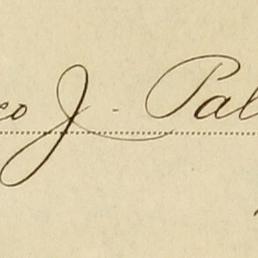 co J. Pal